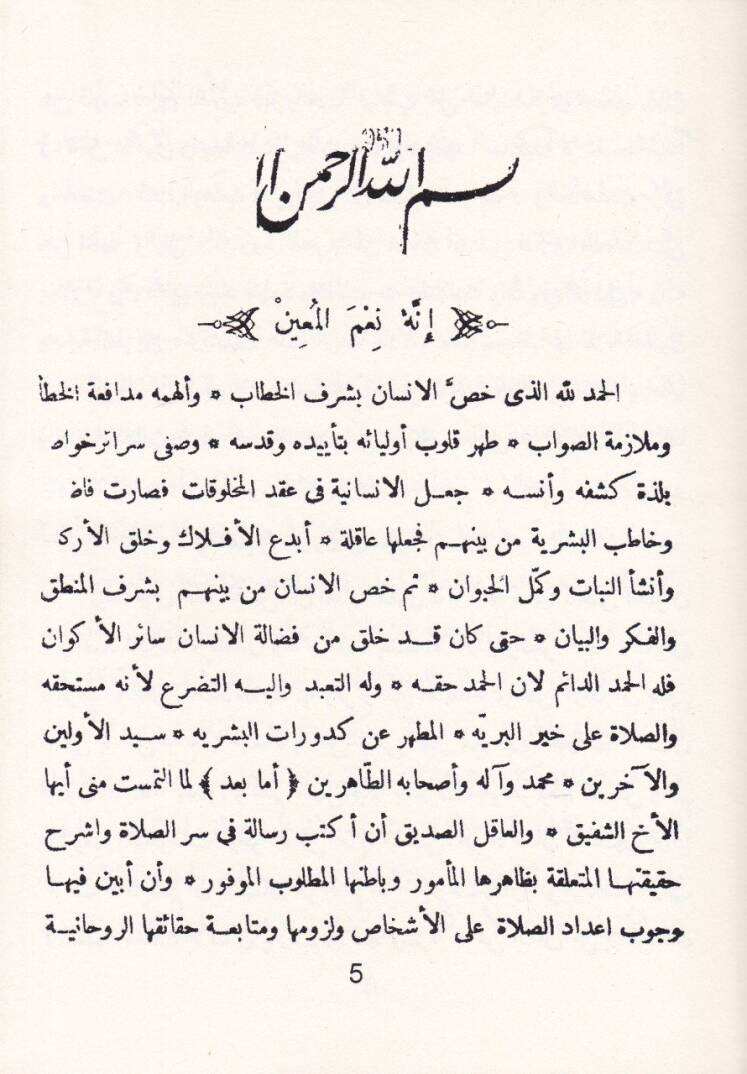 بسم الله الرحمن
إنّهُ نِعْمَ المُعِينْ
الحمد لله الذى خصَّ الانسان بشرف الخطاب * وألهمه مدافعة الخطا
وملازمة الصواب * طهر قلوب أوليائه بتأييده وقدسه * وصفى سرائر خواص
بلذة كشفه وأنسه * جعل الانسانية فى عقد المخلوقات فصارت فاض
وخاطب البشرية من بينهم فجعلها عاقلة * أبدع الأفلاك وخلق الأرك
وأنشأ النبات وكمّل الحيوان * ثم خص الانسان من بينهم بشرف المنطق
والفكر والبيان * حتى كان قد خلق من فضالة الانسان سائر الأكوان
فله الحمد الدائم لان الحمد حقه * وله التعبد واليه التضرع لأنه مستحقه
والصلاة على خير البريّه * المطهر عن كدورات البشريه * سيد الأولين
والآخرين * محمد وآله وأصحابه الطّاهرين ﴿ أما بعد ﴾ لما التمست منى أيها
الأخ الشفيق * والعاقل الصديق أن أكتب رسالة في سر الصلاة واشرح
حقيقتها المتعلقة بظاهرها المأمور وباطنها المطلوب الموفور * وأن أبين فيها
وجوب اعداد الصلاة على الأشخاص ولزومها ومتابعة حقائقها الروحانية
5